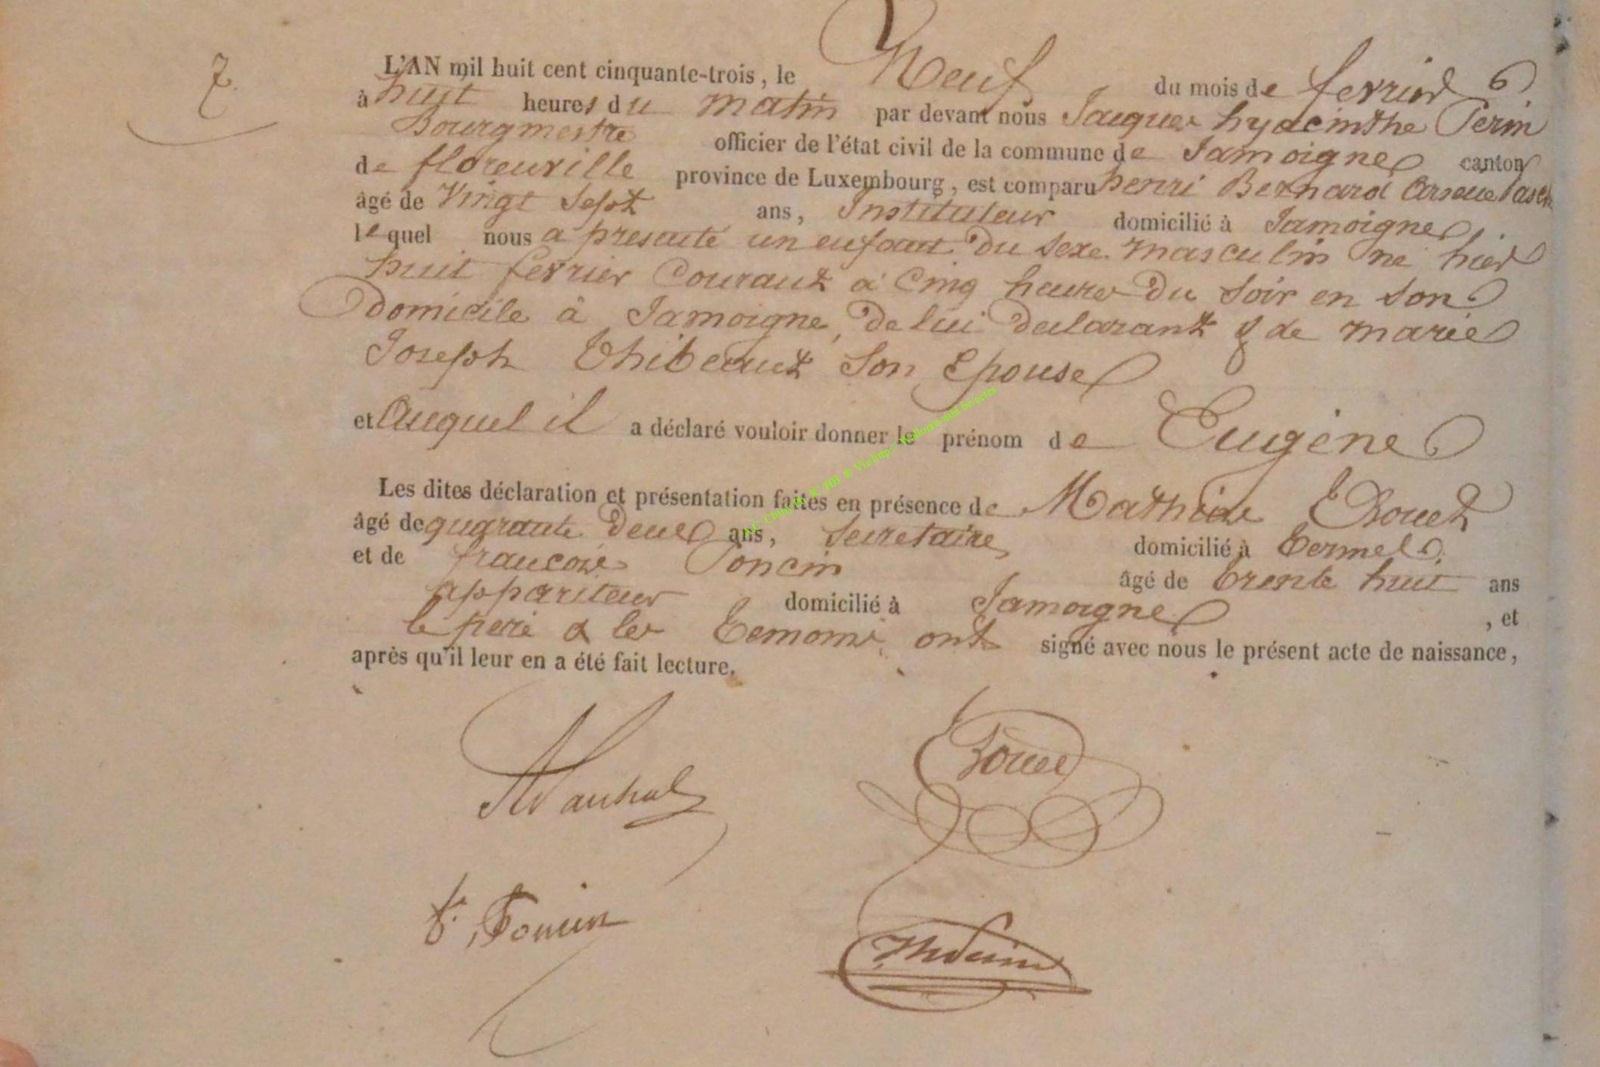 7.
L'AN mil huit cent cinquante-trois, le Neuf du mois de fevrier
à huit heures du matin par devant nous Jacques hyacinthe Perin
Bourgmestre officier de l'état civil de la commune de Jamoigne canton
de florenville province de Luxembourg, est comparu henri Bernard
âgé de Vingt Sept ans, Instituteur domicilié à Jamoigne
lequel nous a presenté un enfant du sexe masculin né hier
huit fevrier Courant à Cinq heures du Soir en son
domicile à Jamoigne, de lui declarant & de marie
Joseph thibeaux Son Epouse
et Auquel il a déclaré vouloir donner le prénom de Eugène
Les dites déclaration et présentation faites en présence de
âgé de quarante deux ans, Secretaire domicilié à termes
et de francois Poncin âgé de trente huit ans
appariteur domicilié à Jamoigne, et
le pere & les temoins ont signé avec nous le présent acte de naissance,
après qu'il leur en a été fait lecture.
Poncin